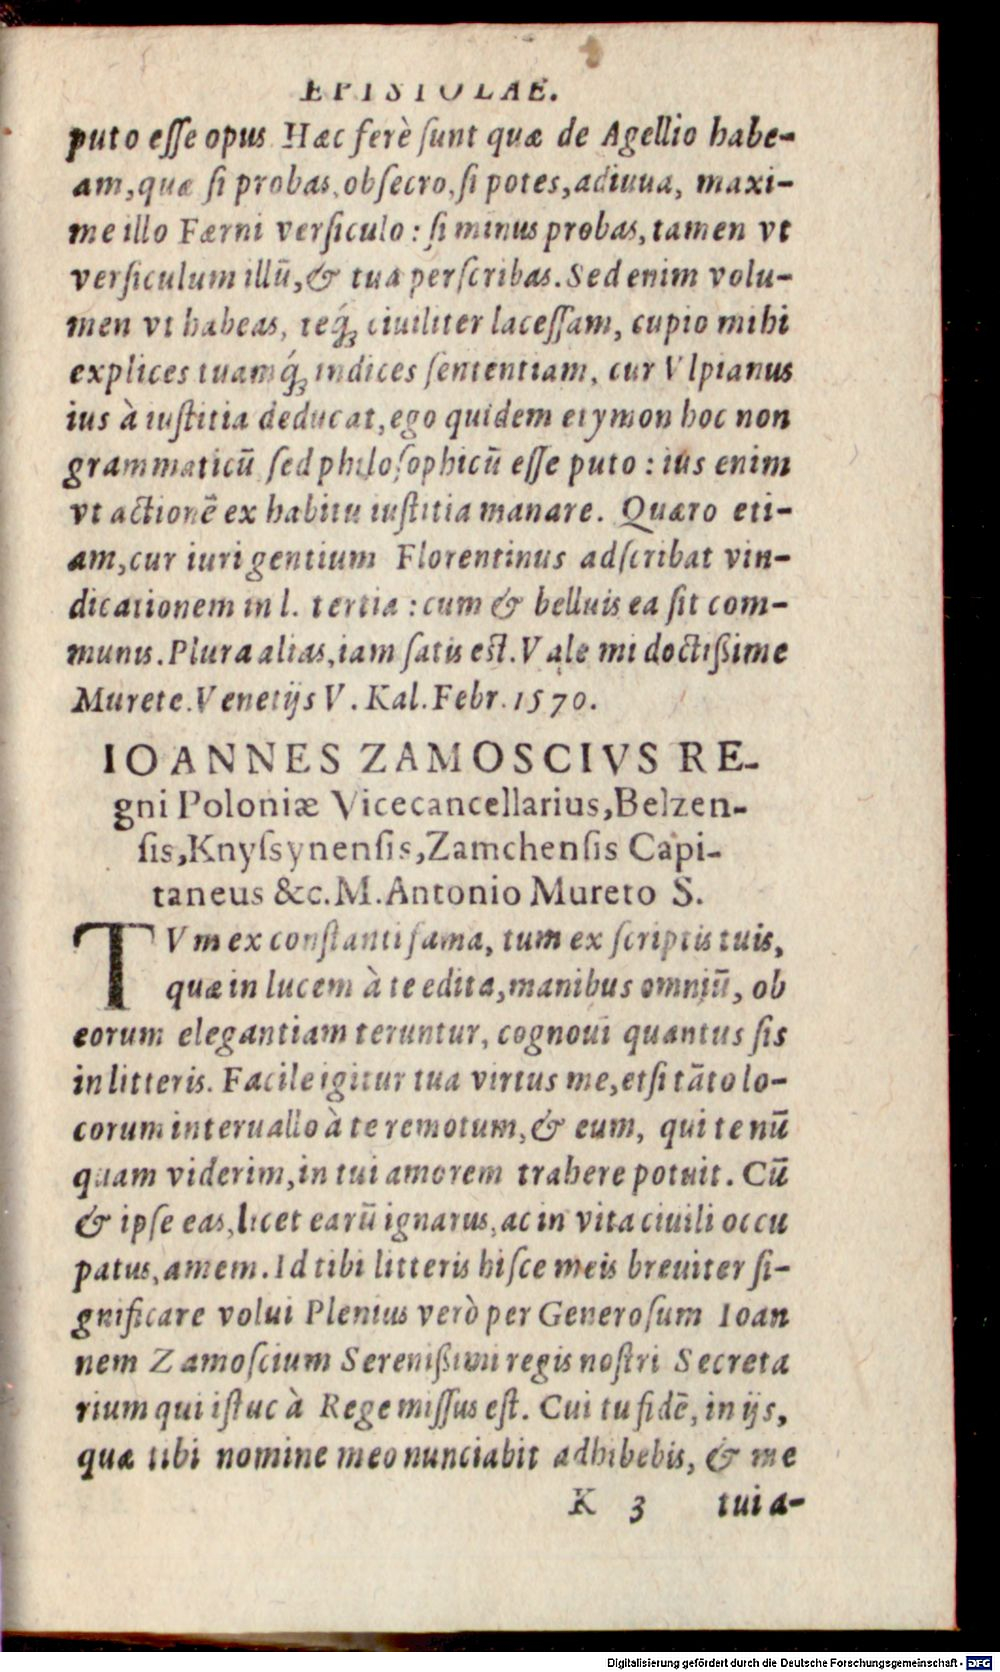 EPISTOLAE.
puto eſſe opus Hæc ferè ſunt quæ de Agellio habe-
am, quæ ſi probas, obſecro, ſi potes, adiuua, maxi-
me illo Færni verſiculo: ſi minus probas, tamen vt
verſiculum illū, & tua perſcribas. Sed enim volu-
men vt habeas, teq́ꝫ ciuiliter laceſſam, cupio mihi
explices tuamq́ꝫ indices ſententiam, cur Vlpianus
ius à iuſtitia deducat, ego quidem etymon hoc non
grammaticū ſed philoſophicū eſſe puto: ius enim
vt actionē ex habitu iuſtitia manare. Quæro eti-
am, cur iuri gentium Florentinus adſcribat vin-
dicationem in l. tertia: cum & belluis ea ſit com-
munis. Plura alias, iam ſatis est. Vale mi doctißime
Murete. Venetijs V. Kal. Febr. 1570.
IOANNES ZAMOSCIVS RE-
gni Poloniæ Vicecancellarius, Belzen-
ſis, Knyſsynenſis, Zamchenſis Capi-
taneus &c. M. Antonio Mureto S.
TVm ex conſtanti fama, tum ex ſcriptis tuis,
quæ in lucem à te edita, manibus omniū, ob
eorum elegantiam teruntur, cognoui quantus ſis
in litteris. Facile igitur tua virtus me, etſi tāto lo-
corum interuallo à te remotum, & eum, qui te nū
quam viderim, in tui amorem trahere potuit. Cū
& ipſe eas, licet earū ignarus, ac in vita ciuili occu
patus, amem. Id tibi litteris hiſce meis breuiter ſi-
gnificare volui Plenius verò per Generoſum Ioan
nem Zamoſcium Sereniſsimi regis noſtri Secreta
rium qui iſtuc à Rege miſſus eſt. Cui tu fidē, in ijs,
quæ tibi nomine meo nunciabit adhibebis, & me
K 3 tui a-
Digitalisierung gefördert durch die Deutsche Forschungsgemeinschaft - DFG